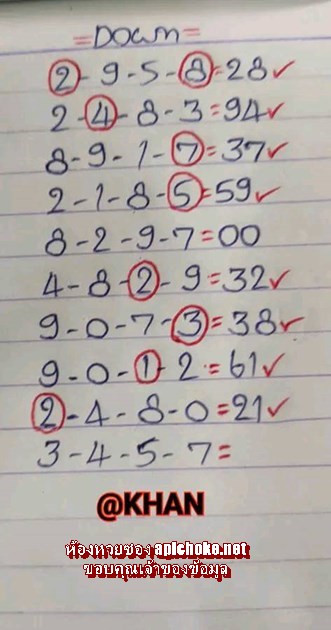 =Down=
2-9-5-8=28✓
2-4-8-3=94✓
8-9-1-7=37✓
2-1-8-5=59✓
8-2-9-7=00
4-8-2-9=32✓
9-0-7-3=38✓
9-0-1-2=61✓
2-4-8-0=21✓
3-4-5-7=
@KHAN
ห้องหวยซอง apichoke.net
ขอบคุณเจ้าของข้อมูล